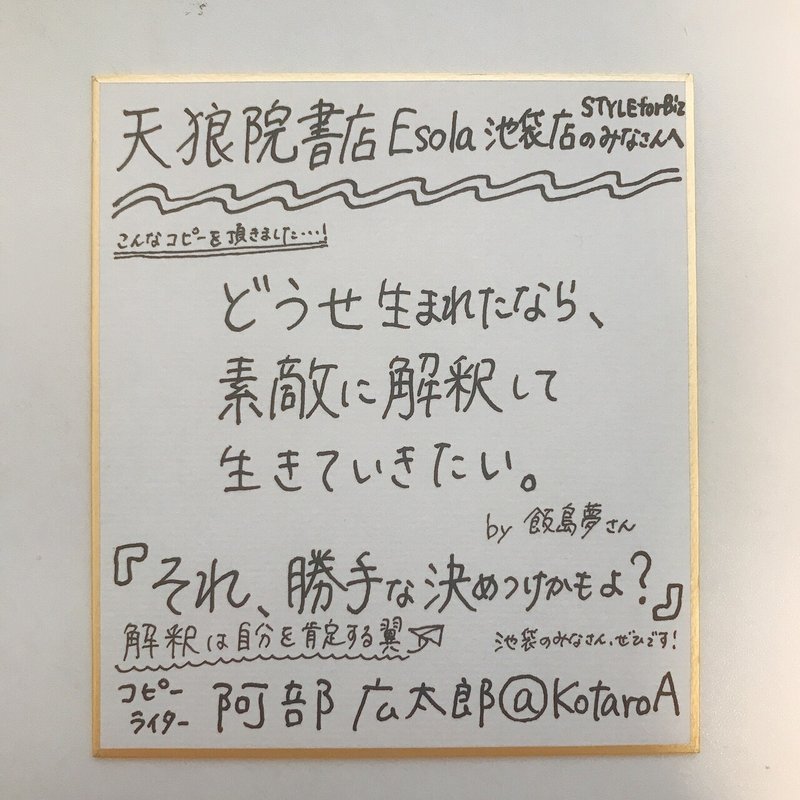 天狼院書店Esola池袋店 STYLEforBizのみなさんへ
こんなコピーを頂きました…!
どうせ生まれたなら、
素敵に解釈して
生きていきたい。
by 飯島夢さん
『それ、勝手な決めつけかもよ?』
解釈は自分を肯定する翼
池袋のみなさん、ぜひです!
コピーライター 阿部 広太郎@KotaroA